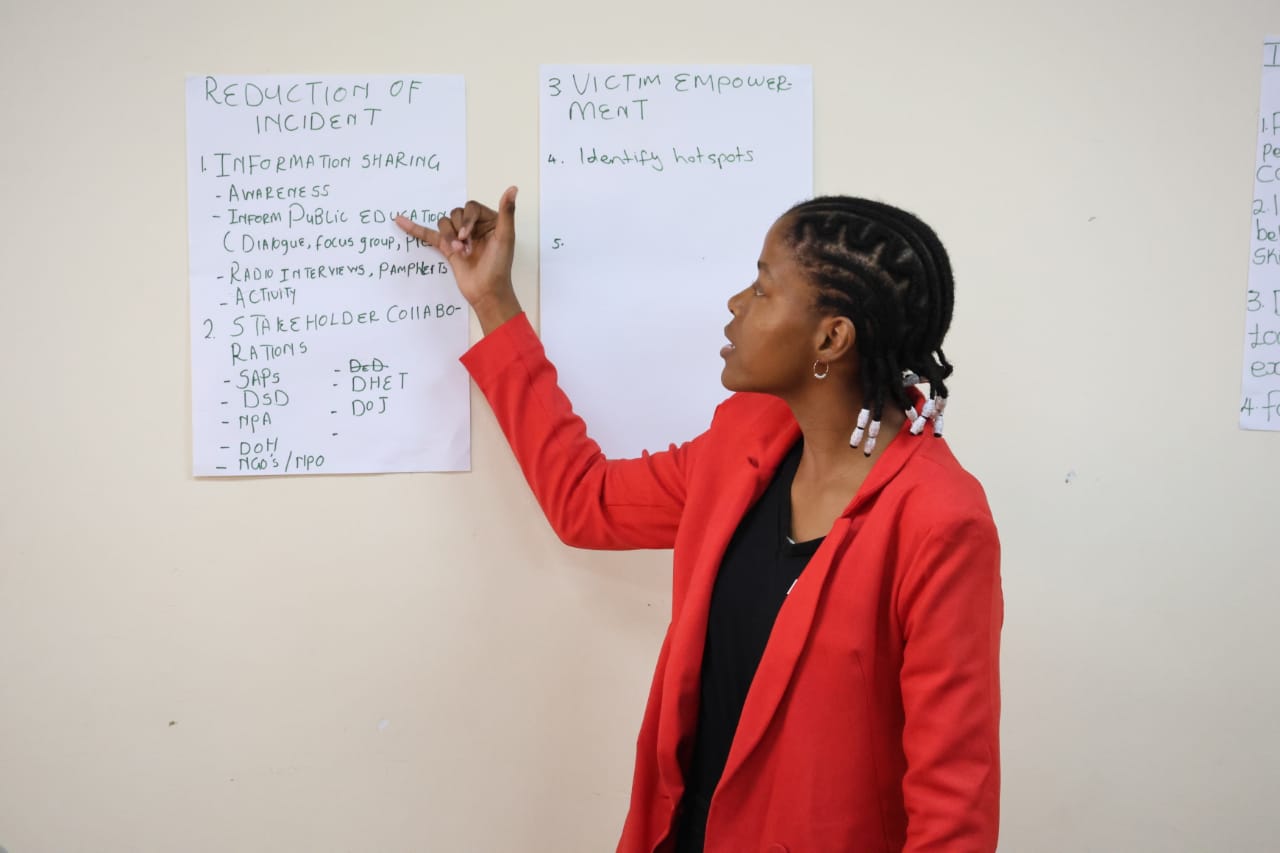 REDUCTION OF
INCIDENT
1. INFORMATION SHARING
- AWARENESS
- INFORM PUBLIC EDUCATION
(Dialogue, focus group,
- RADIO INTERVIEWS, PAMPHLETS
- ACTIVITY
2. STAKEHOLDER COLLABO-
RATIONS
- SAPS
- DSD
- NPA
- DOH
- NGO's/NPO
- DED
- DHET
- DOJ
-
3 VICTIM EMPOWER-
MENT
4. Identify hotspots
5.
1.
2.
3.
4.